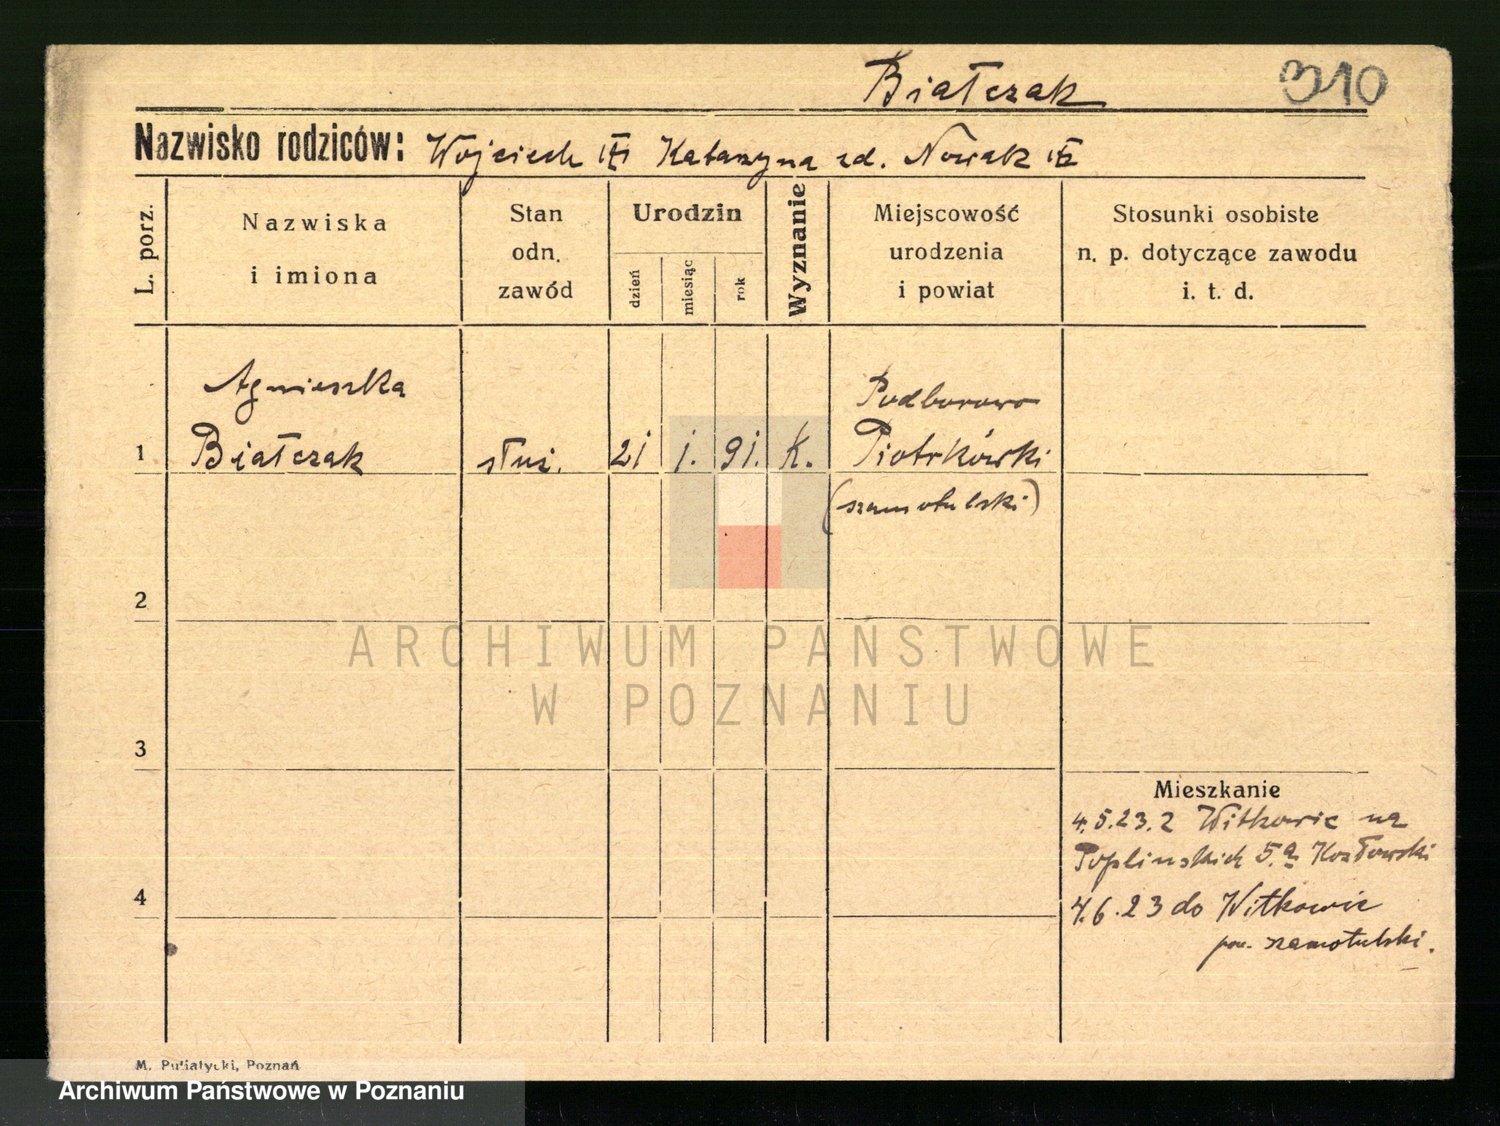 Białczak 310
Nazwisko rodziców: Wojciech Katarzyna zd. Nowak
L. porz.
Nazwiska
i imiona
Stan
odn.
zawód
Urodzin
dzień
miesiąc
rok
Wyznanie
Miejscowość
urodzenia
i powiat
Stosunki osobiste
n. p. dotyczące zawodu
i. t. d.
Agnieszka
Podborowo
1 Białczak służ. 21 1. 91. K. Piotrkówski
(szamotulski)
2
ARCHIWUM PAŃSTWOWE
W POZNANIU
3
Mieszkanie
4.5.23. z Witkowic na
Poplinskich 5.a Kozłowski
4
4.6.23 do Witkowic
pow. szamotulski.
M. Putiatycki, Poznań
Archiwum Państwowe w Poznaniu